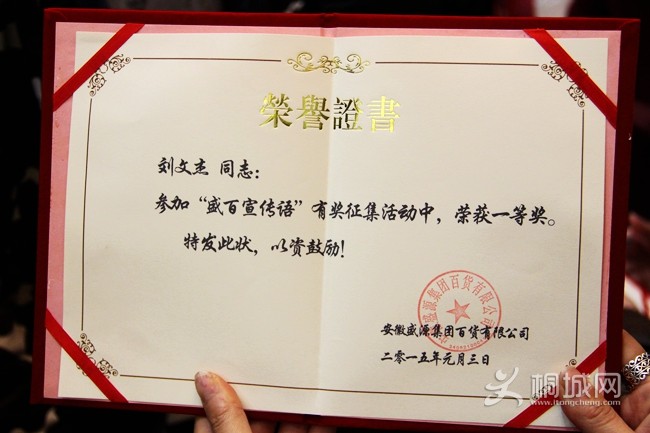 榮譽證書
刘文杰 同志：
参加“盛百宣传语”有奖征集活动中，荣获一等奖。
特发此状，以资鼓励！
盛源集团百货有限公司
安徽盛源集团百货有限公司
二零一五年元月三日
桐城网
www.itongcheng.com